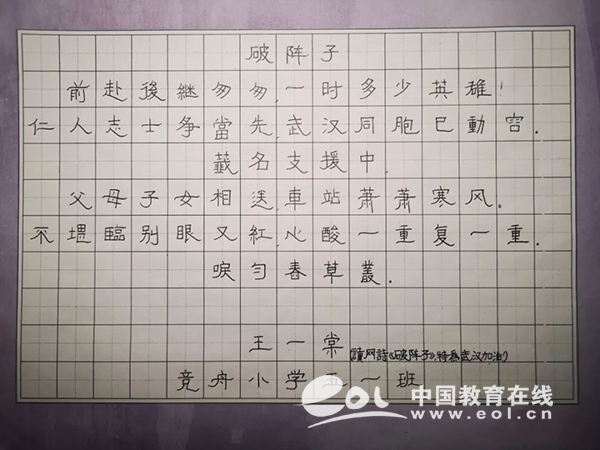 破阵子
前赴後継匆匆,一时多少英雄!
仁人志士争當先,武汉同胞已動容.
籖名支援中.
父母子女相送,車站萧萧寒风.
不堪臨别眼又紅,心酸一重复一重.
唳匀春草叢.
王一棠(讀网詩《破阵子》,特爲武汉加油)
竞舟小学五一班
eol 中国教育在线
www.eol.cn